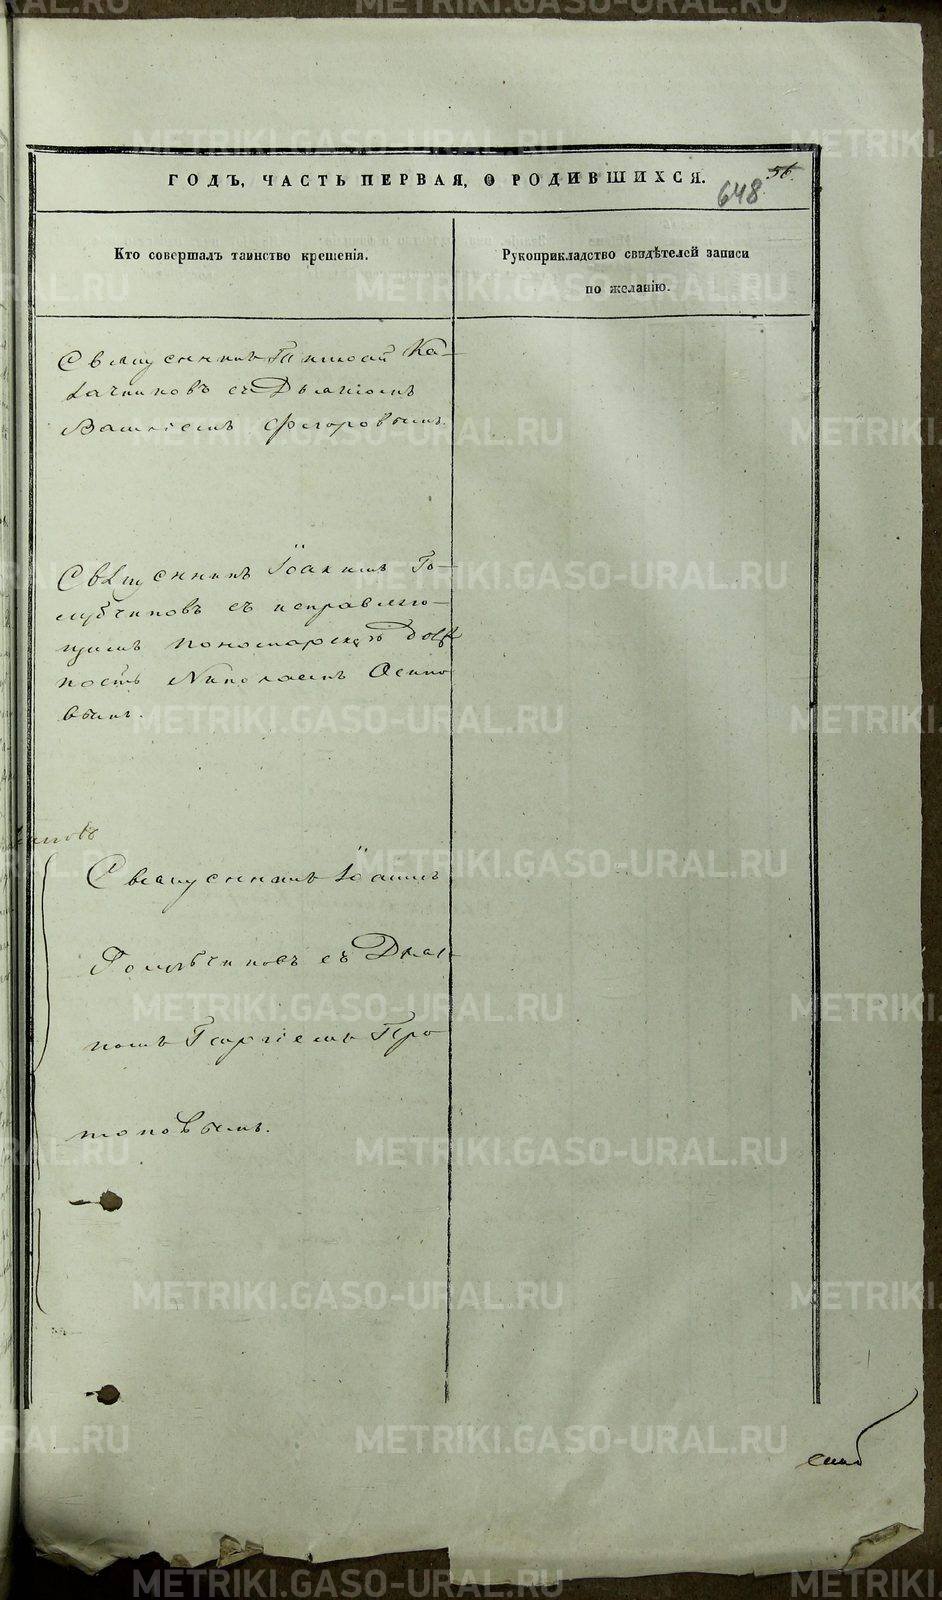 ГОДЪ, ЧАСТЬ ПЕРВАЯ, О РОДИВШИХСЯ.
56.
648
Кто совершалъ таинство крещенія.
Рукоприкладство свидѣтелей записи
по желанію.
Священникъ Николай Ка-
лачниковъ съ Дьякономъ
Василіемъ Флоровымъ.
Священникъ Іоакимъ Го-
лубчиковъ съ исправляю-
щимъ пономарскую долж
ность Николаемъ Осипо
вымъ.
Священникъ Іоакимъ
Голубчиковъ съ Дьяко
номъ Георгіемъ Про
топоповымъ.
METRIKI.GASO-URAL.RU